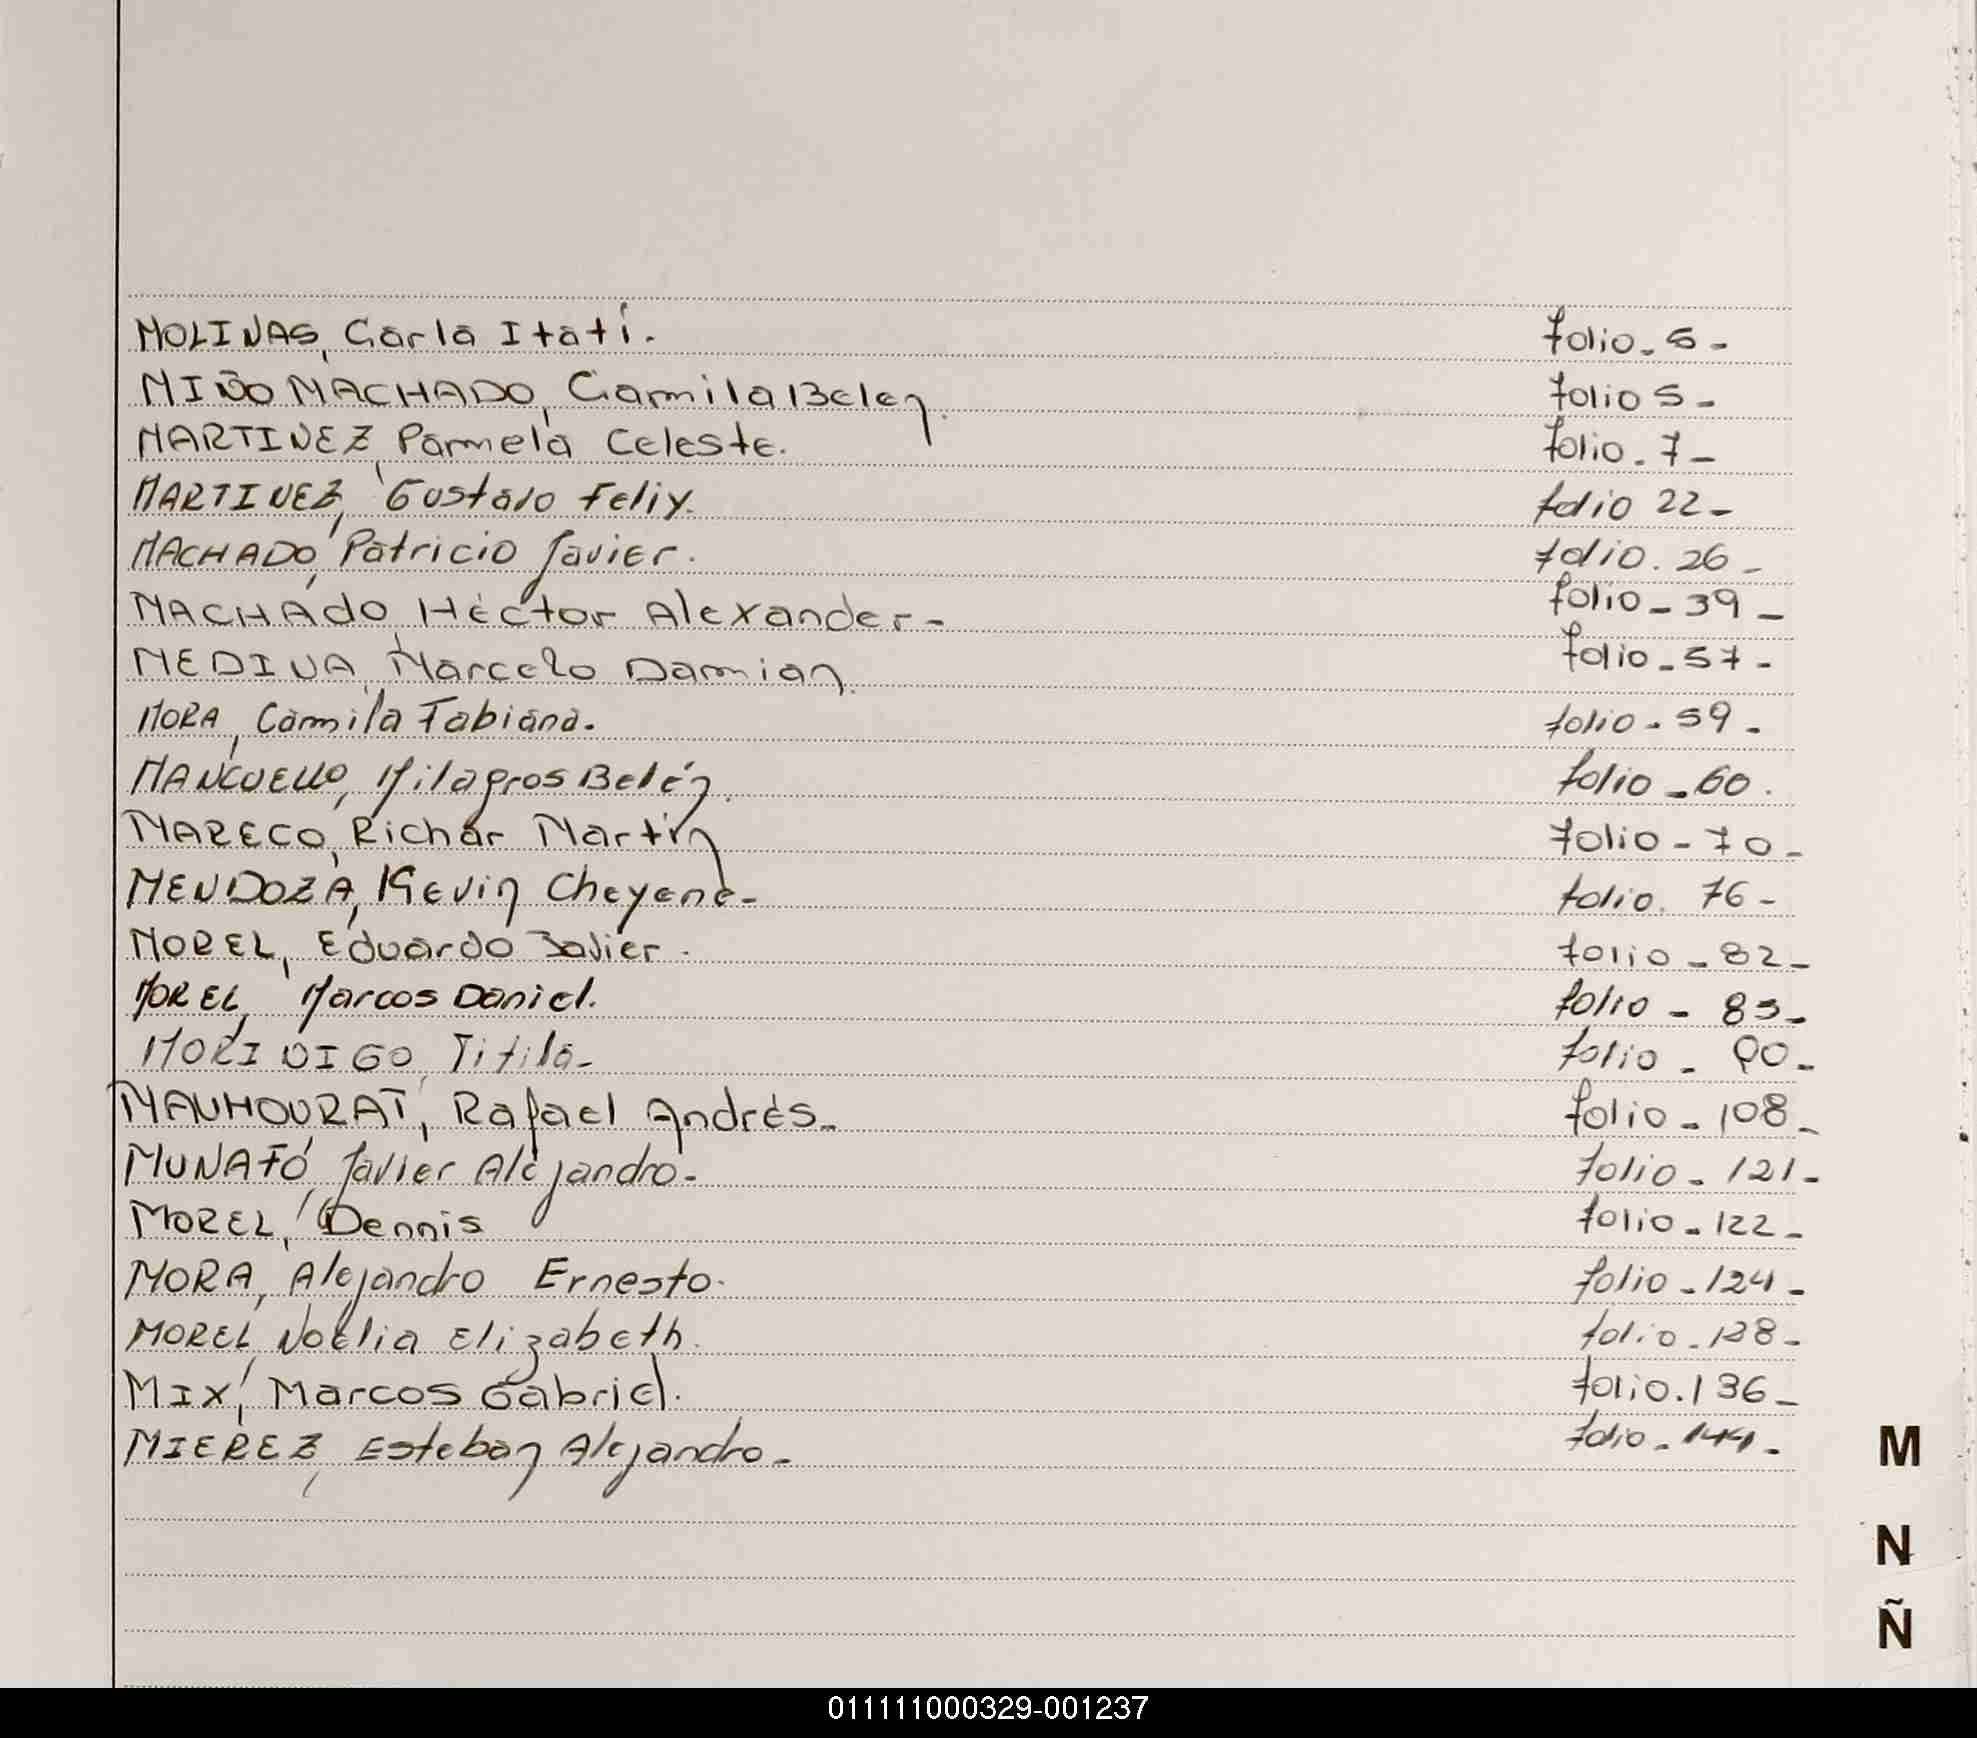 MOLINAS, Carla Itatí. folio - 5 -
MIÑO MACHADO, Camila Belen. folio 5 -
MARTINEZ, Pamela Celeste. folio - 7 -
MARTINEZ, Gustavo Felix. folio 22 -
MACHADO, Patricio Javier. folio. 26 -
MACHADO, Héctor Alexander - folio - 39 -
MEDINA, Marcelo Damian. folio - 57 -
MORA, Camila Fabiana. folio - 59 -
MANCUELLO, Milagros Belén. folio - 60.
MARECO, Richar Martín folio - 70 -
MENDOZA, Kevin Cheyene - folio. 76 -
MOREL, Eduardo Javier. folio - 82 -
MOREL, Marcos Daniel. folio - 83 -
MORINIGO, Titila - folio - 90 -
MANHOURAT, Rafael Andrés - folio - 108 -
MUNAFÓ, Javier Alejandro - folio - 121 -
MOREL, Dennis folio - 122 -
MORA, Alejandro Ernesto. folio - 124 -
MOREL, Noelia Elizabeth. folio - 128 -
MIX, Marcos Gabriel. folio. 136 -
MIEREZ, Esteban Alejandro - folio - 144 -
M
N
Ñ
011111000329-001237